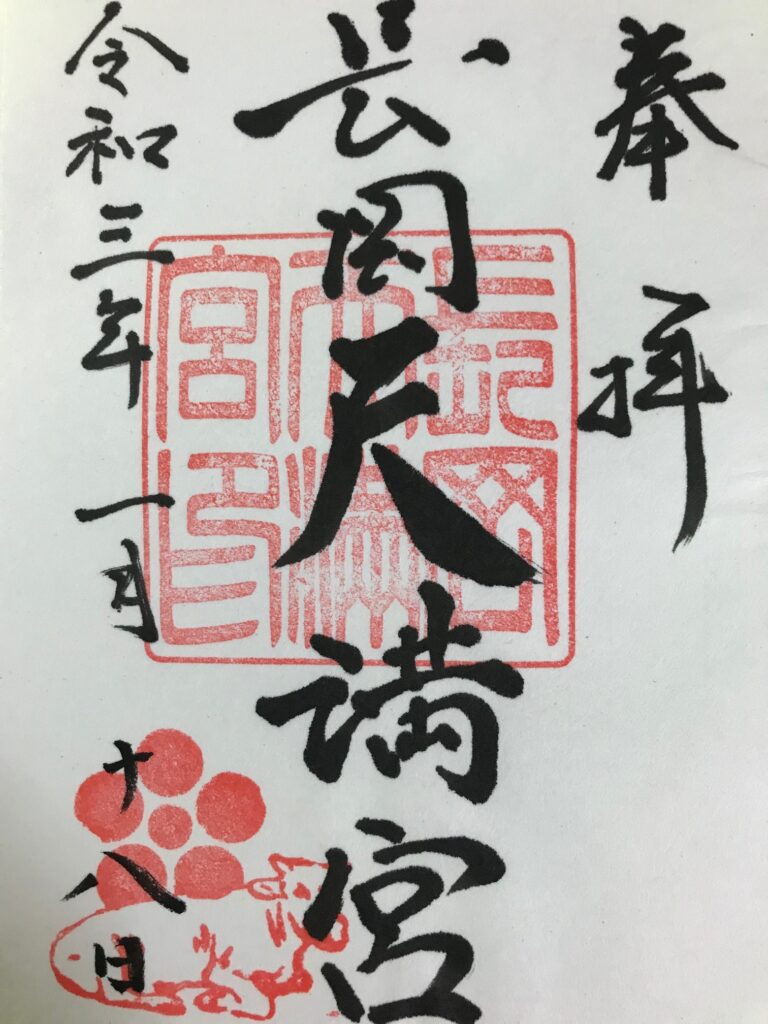 奉拝
長岡天満宮
長岡天満宮印
令和三年一月十八日